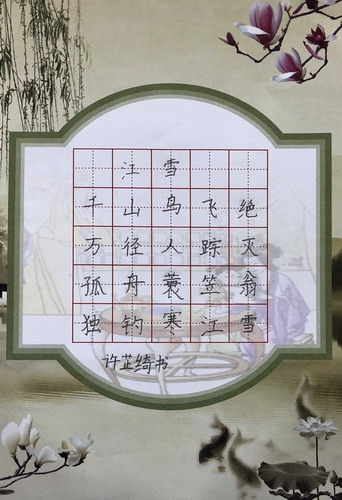 江雪
千山鸟飞绝
万径人踪灭
孤舟蓑笠翁
独钓寒江雪
许芷绮书